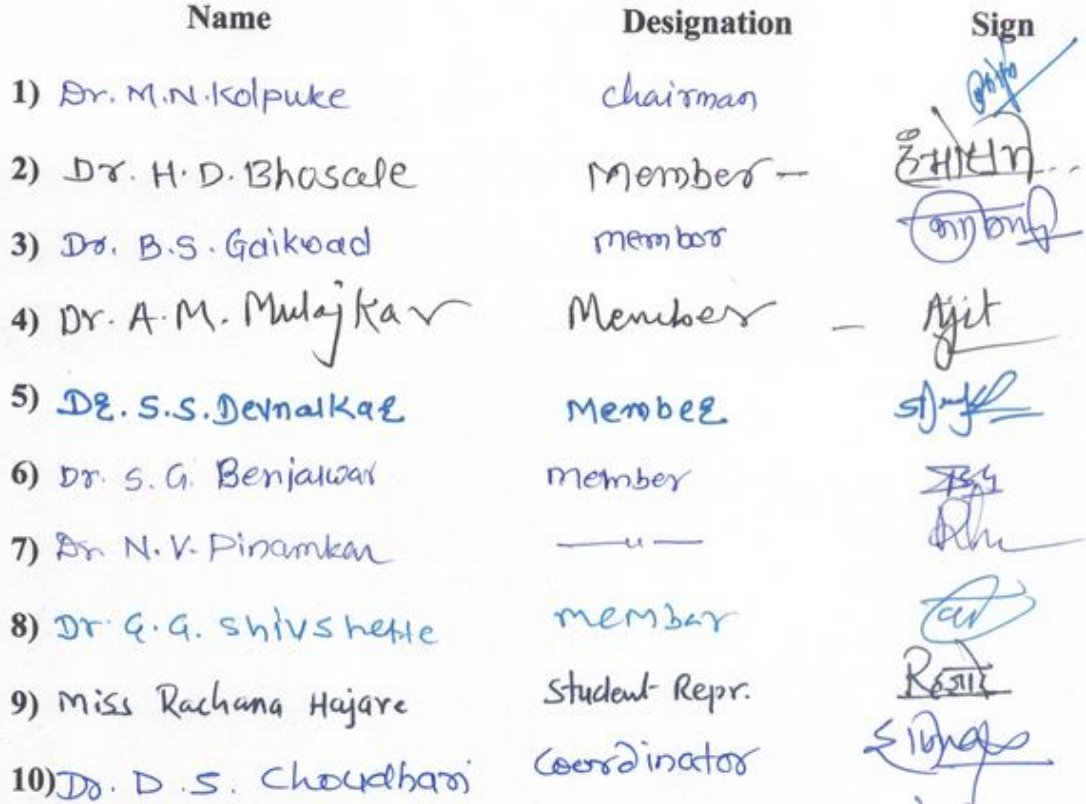 Name Designation Sign
1) Dr. M.N. Kolpuke chairman
2) Dr. H.D. Bhosale Member -
3) Dr. B.S. Gaikwad member
4) Dr. A.M. Mulajkar Member - Ajit
5) Dr. S.S. Devnalkar Member
6) Dr. S.G. Benjalwar member
7) Dr. N.V. Pinamkar —〃—
8) Dr. G.G. Shivshette member
9) Miss Rachana Hajare Student Repr.
10) Dr. D.S. Choudhari Coordinator